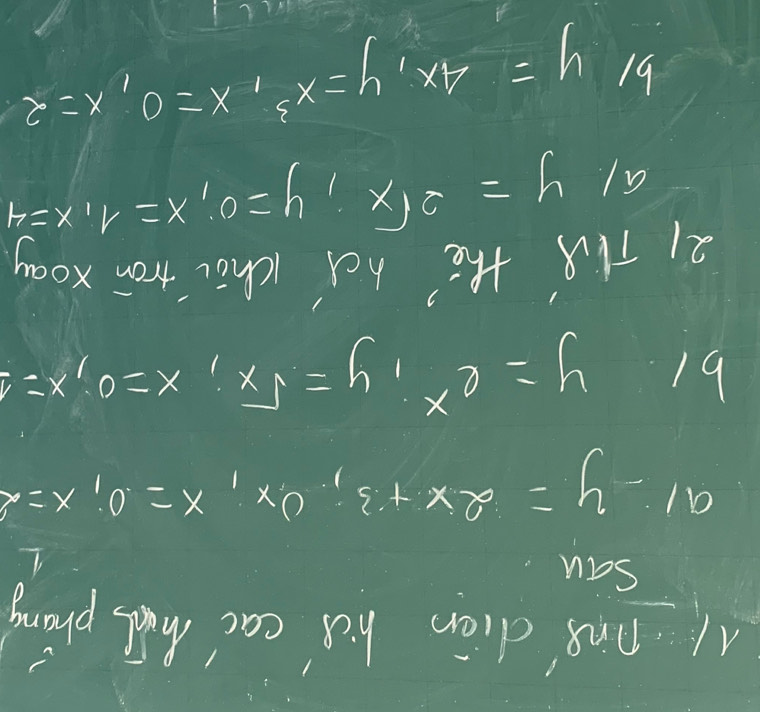 1/ Tính diện tích các hình phẳng
sau
a/ y = 2x + 3; 0x; x = 0; x = 2
b/ y = eˣ; y = √x; x = 0; x = 1
2/ Tính thể tích khối tròn xoay
a/ y = 2√x; y = 0; x = 1; x = 4
b/ y = 4x; y = x³; x = 0; x = 2